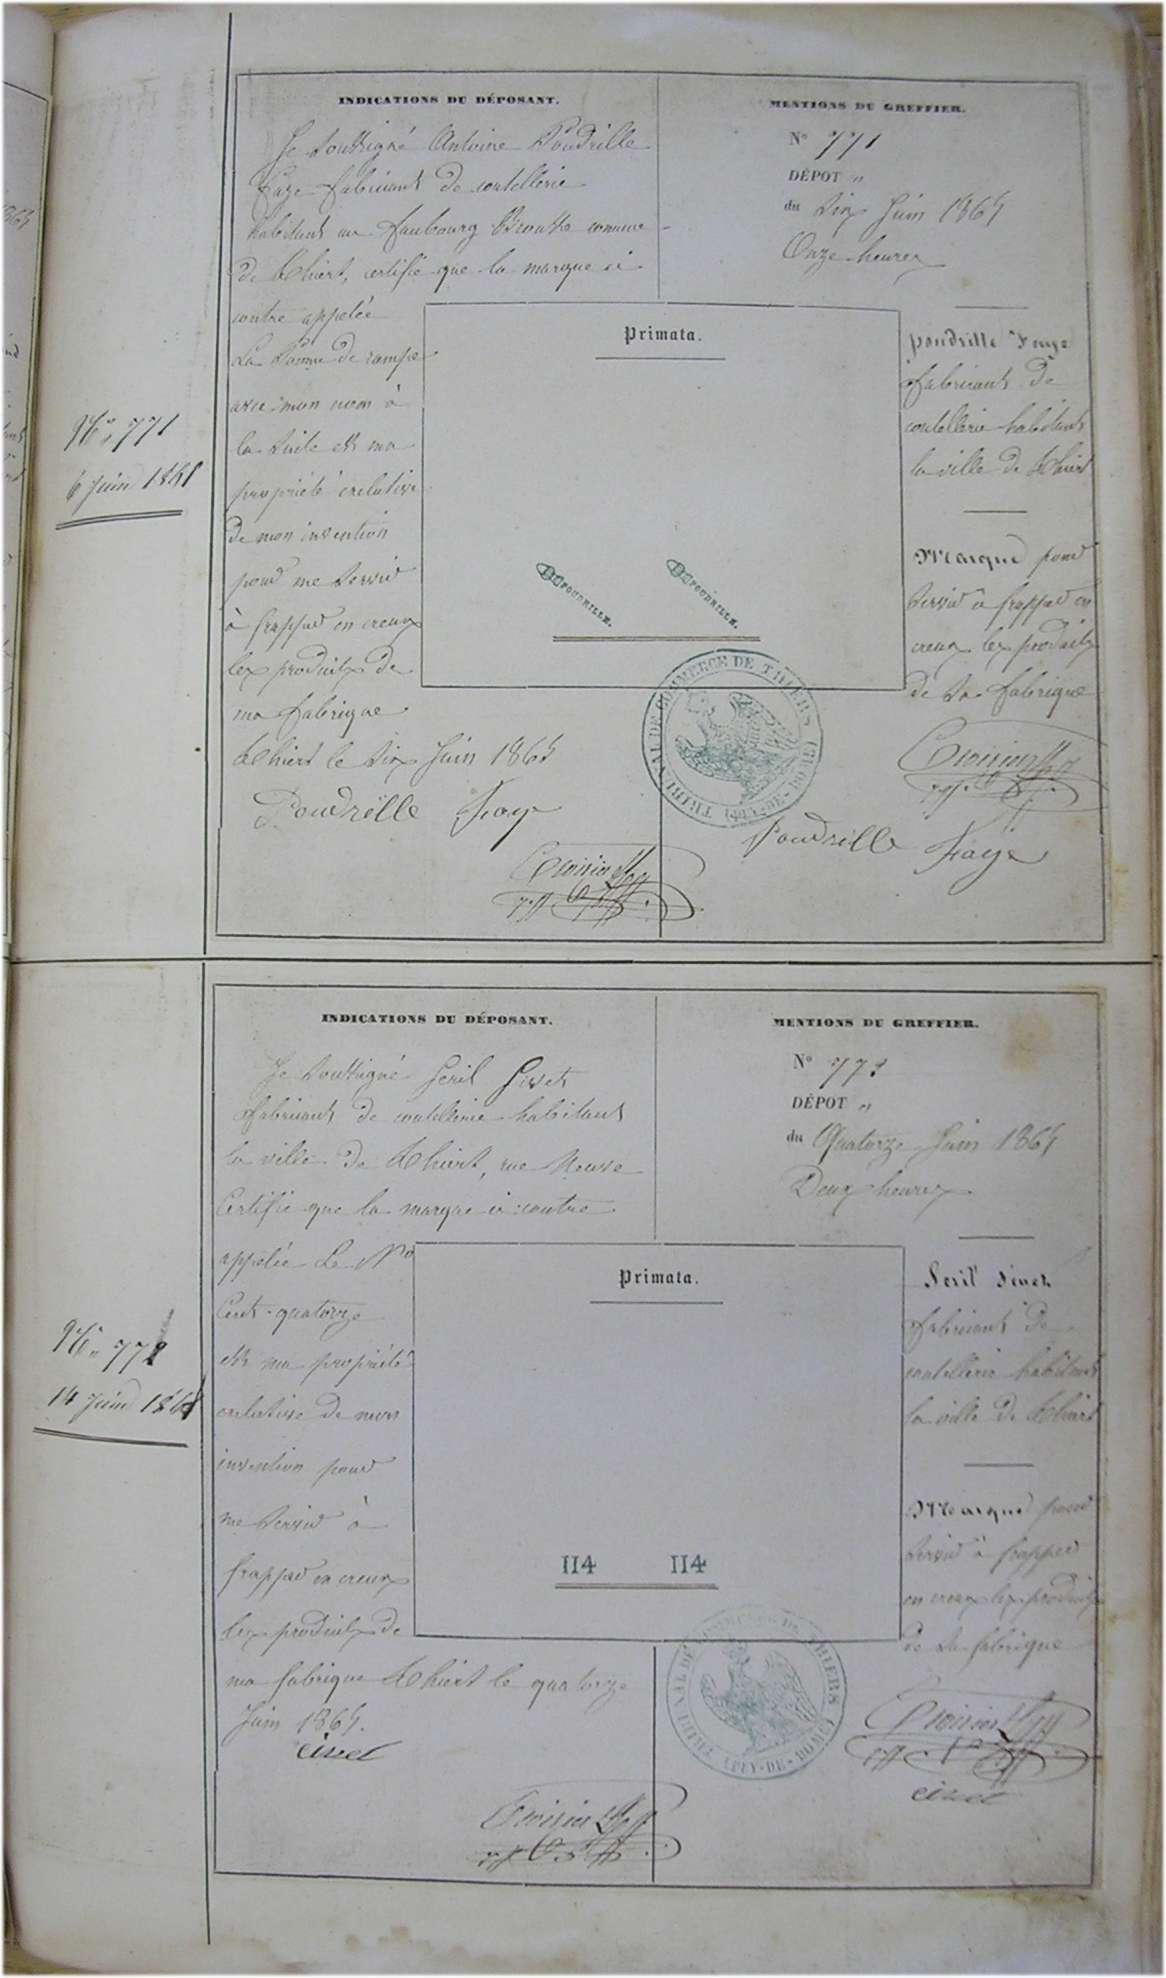 INDICATIONS DU DÉPOSANT.
Je soussigné Antoine Poudrille
Faye fabricant de coutellerie
habitant au faubourg commune
de Thiers, certifie que la marque ci
contre appelée
La Pomme de rampe
avec mon nom à
la suite est ma
propriété exclusive
de mon invention
pour me servir
à frapper en creux
les produits de
ma fabrique
Thiers le six Juin 1865
Poudrille Faye
MENTIONS DU GREFFIER.
No 771
DÉPOT "
du six Juin 1865
Onze heures
Primata.
POUDRILLE. POUDRILLE.
poudrille Faye
fabricant de
coutellerie habitant
la ville de Thiers
Marque pour
servir à frapper en
creux les produits
de sa fabrique
TRIBUNAL DE COMMERCE DE THIERS (PUY-DE-DOME)
Poudrille Faye
No 771
6 Juin 1865
INDICATIONS DU DÉPOSANT.
Je soussigné Geril Sivet
fabricant de coutellerie habitant
la ville de Thiers, rue Neuve
Certifie que la marque ci contre
appelée Le No
Cent-quatorze
est ma propriété
exclusive de mon
invention pour
me servir à
frapper en creux
les produits de
ma fabrique Thiers le quatorze
Juin 1865.
civet
MENTIONS DU GREFFIER.
No 772
DÉPOT "
du Quatorze Juin 1865
Deux heures
Primata.
114 114
fabricant de
coutellerie habitant
la ville de Thiers
Marque pour
servir à frapper
en creux les produits
de sa fabrique
TRIBUNAL DE COMMERCE DE THIERS (PUY-DE-DOME)
civet
No 772
14 Juin 1865